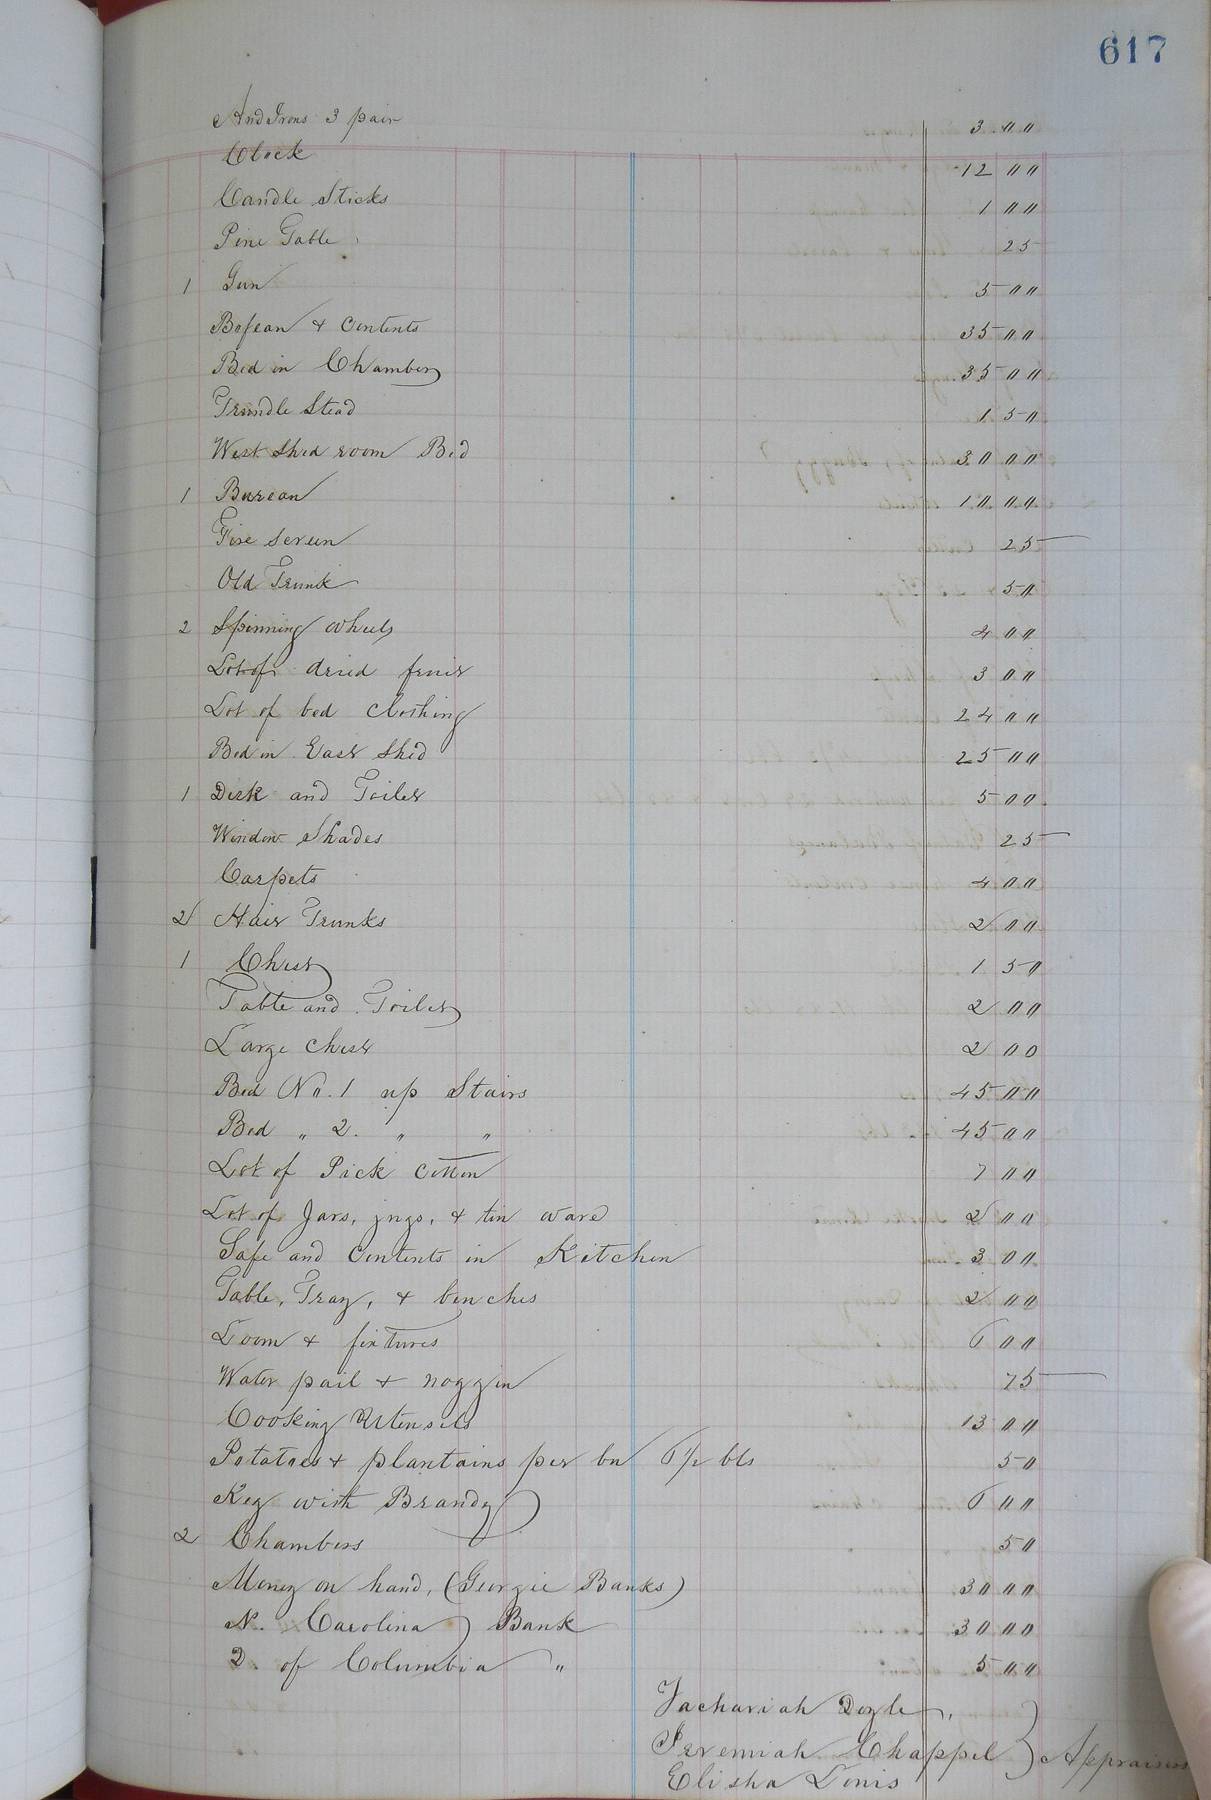 617
AndIrons 3 pair 3 00
Clock 12 00
Candle Sticks 1 00
Pine Table 25
1 Gun 5 00
Bofeau & Contents 35 00
Bed in Chamber 35 00
Trundle Stead 1 50
West Shed room Bed 30 00
1 Bureau 10 00
Fire Screen 25
Old Trunk 50
2 Spinning wheels 4 00
Lot of dried fruit 3 00
Lot of bed Clothing 24 00
Bed in East Shed 25 00
1 Desk and Toilet 5 00
Window Shades 25
Carpets 4 00
2 Hair Trunks 2 00
1 Chest 1 50
Table and Toilet 2 00
Large Chest 2 00
Bed No. 1 up Stairs 45 00
Bed " 2. " " 45 00
Lot of Pick Cotton 7 00
Lot of Jars, jugs, & tin ware 2 00
Safe and Contents in Kitchen 3 00
Table, Tray, & benches 2 00
Loom & fixtures 6 00
Water pail & noggin 75
Cooking Utensils 13 00
Potatoes & plantains per bu 6 1/2 bls 50
Keg with Brandy 6 00
2 Chambers 50
Money on hand, (Georgie Banks) 30 00
N. Carolina Bank 30 00
D. of Columbia " 5 00
Zachariah Dogle,
Jeremiah Chappel } Appraisers
Elisha